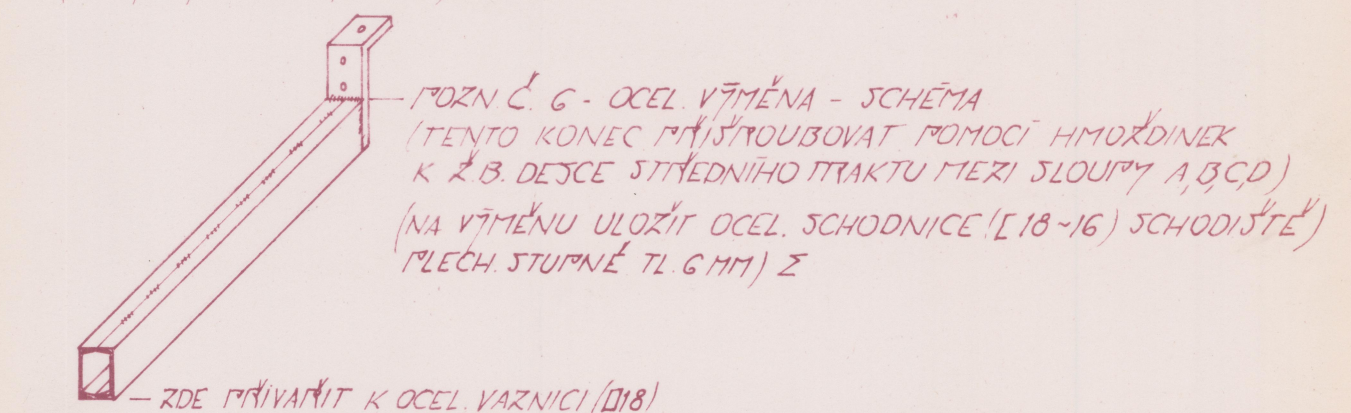 POZN. Č. 6 - OCEL. VÝMĚNA - SCHÉMA
(TENTO KONEC PŘIŠROUBOVAT POMOCÍ HMOŽDINEK
K Ž.B. DESCE STŘEDNÍHO TRAKTU MEZI SLOUPY A,B,C,D)
(NA VÝMĚNU ULOŽIT OCEL. SCHODNICE ([18~16) SCHODIŠTĚ)
PLECH. STUPNĚ TL. 6 MM) Σ
— ZDE PŘIVAŘIT K OCEL. VAZNICI (▯18)